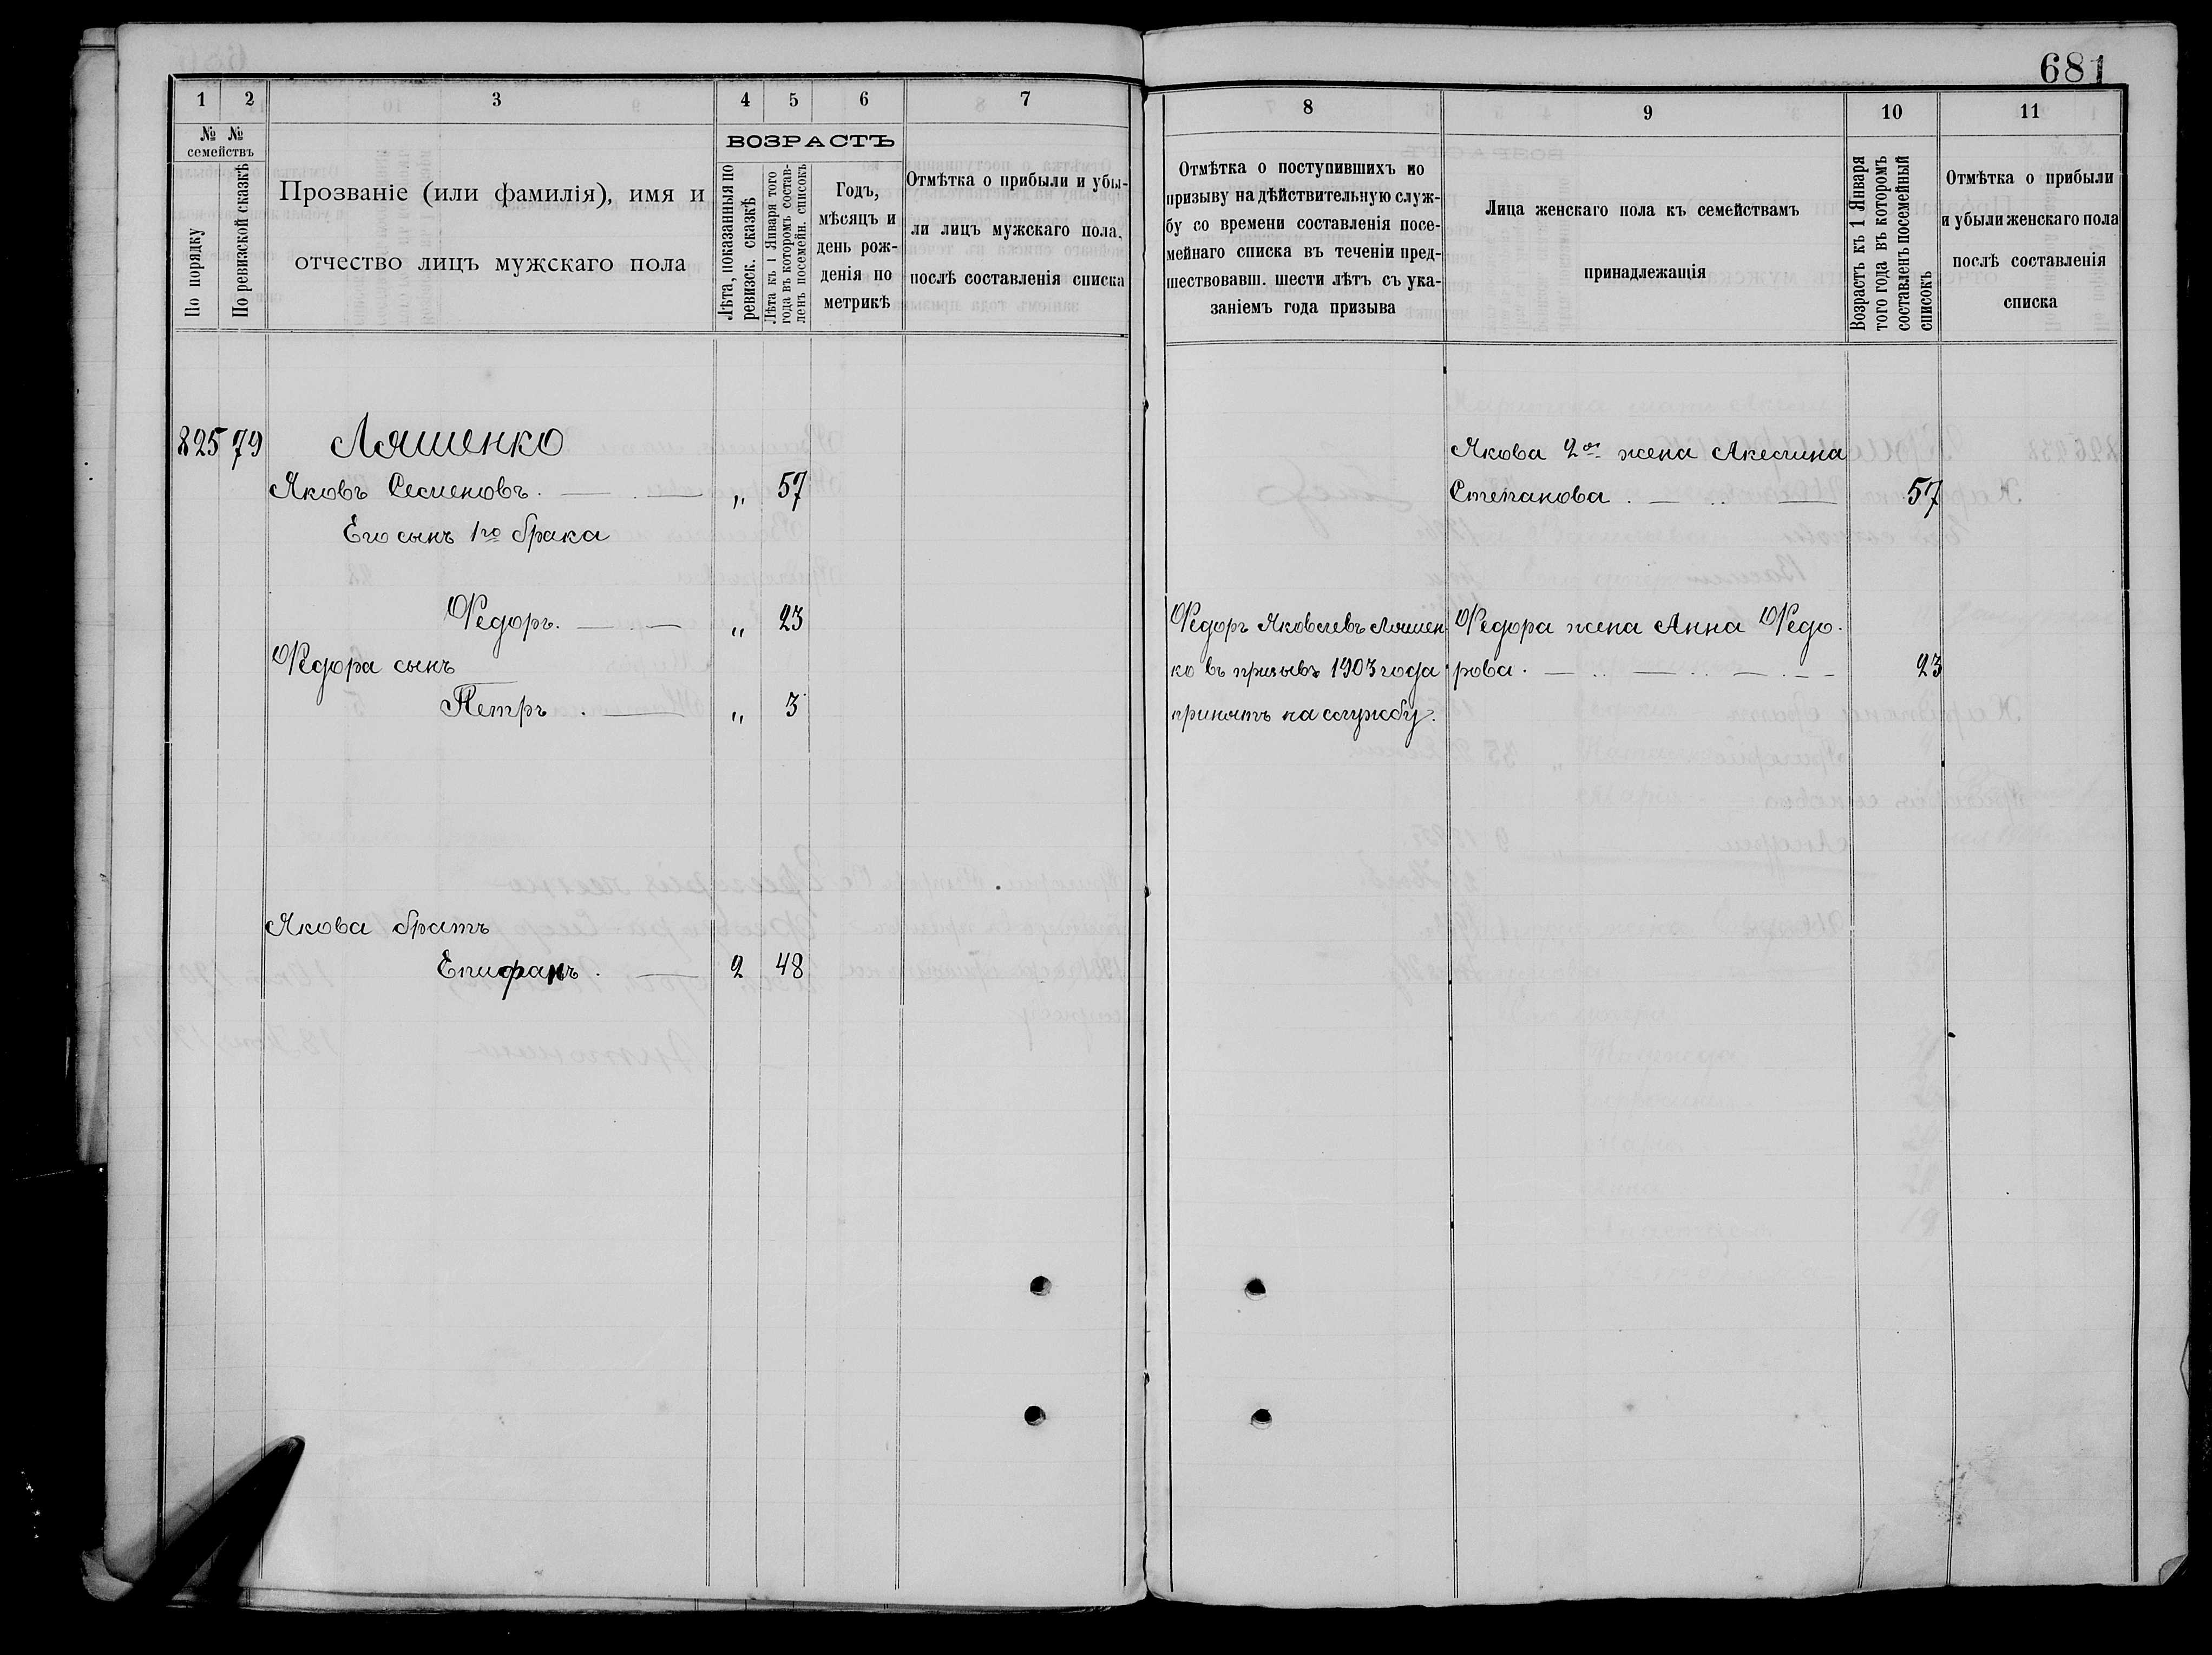 681
1 2 3 4 5 6 7
№ № семействъ
По порядку
По ревизской сказкѣ
Прозваніе (или фамилія), имя и
отчество лицъ мужскаго пола
ВОЗРАСТЪ
Лѣта, показанныя по
ревизск. сказкѣ
Лѣта къ 1 Января того
года въ которомъ состав-
ленъ посемейн. списокъ
Годъ,
мѣсяцъ и
день рож-
денія по
метрикѣ
Отмѣтка о прибыли и убы-
ли лицъ мужскаго пола,
послѣ составленія списка
8 9 10 11
Отмѣтка о поступившихъ по
призыву на дѣйствительную служ-
бу со времени составленія посе-
мейнаго списка въ теченіи пред-
шествовавш. шести лѣтъ съ ука-
заніемъ года призыва
Лица женскаго пола къ семействамъ
принадлежащія
Возрастъ къ 1 Января
того года въ которомъ
составленъ посемейный
списокъ
Отмѣтка о прибыли
и убыли женскаго пола
послѣ составленія
списка
825 79 Ляшенко
Яковъ Семеновъ. „ 57
Его сынъ 1го брака
Федоръ. „ 23
Федора сынъ
Петръ „ 3
Якова братъ
Епифанъ. 2 48
Федоръ Яковлевъ Ляшен-
ко въ призывъ 1903 года
принятъ на службу.
Якова 2ая жена Акелина
Степанова. 57
Федора жена Анна Федо-
рова. 23